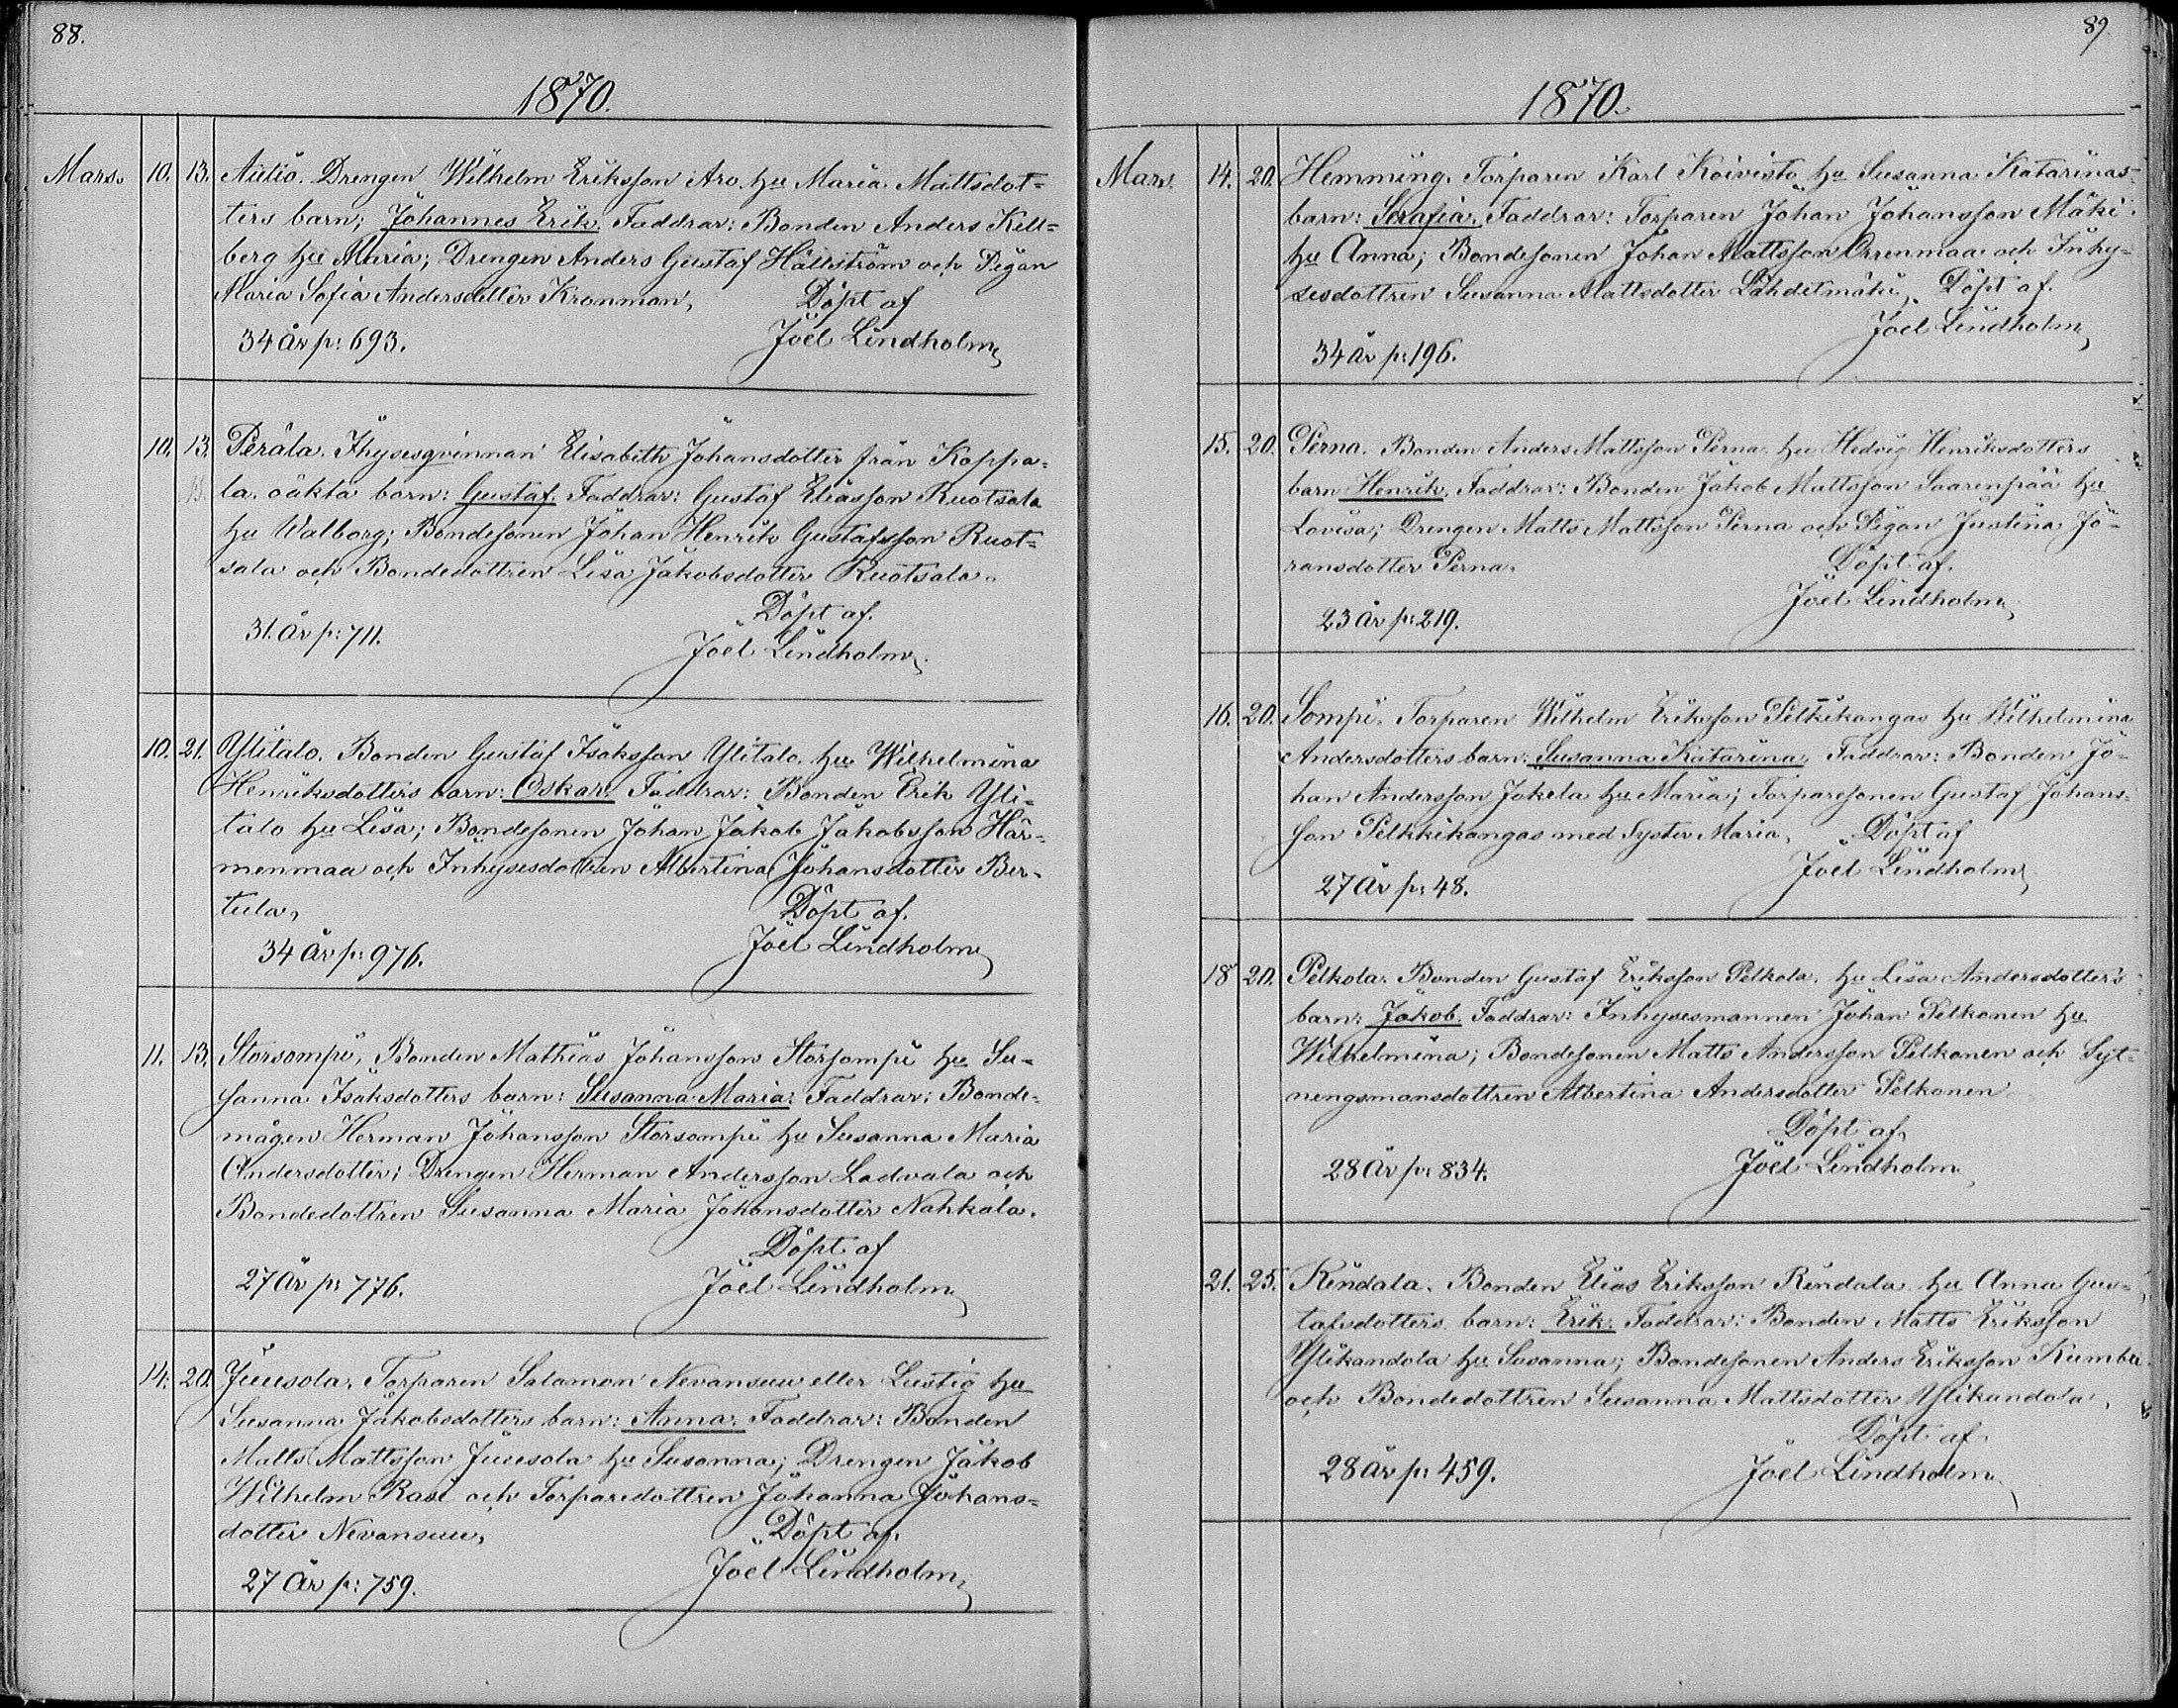 88.
1870.
Mars. 10. 13. Autio. Drengen Wilhelm Eriksson Aro. hu Maria Mattsdot=
ters barn; Johannes Erik. Faddrar: Bonden Anders Kell=
berg hu Maria; Drengen Anders Gustaf Hällström och Pigan
Maria Sofia Andersdotter Kronman, Döpt af
34 år p: 693. Joel Lindholm
10. 13. Perälä. Ihysesqvinnan Elisabeth Johansdotter från Koppa=
la. oäkta barn: Gustaf. Faddrar: Gustaf Eliasson Ruotsala
hu Walborg; Bondesonen Johan Henrik Gustafsson Ruot=
sala och Bondedottren Lisa Jakobsdotter Ruotsala.
Döpt af.
31. år p: 711. Joel Lindholm
10. 21. Ylitalo. Bonden Gustaf Isaksson Ylitalo. hu Wilhelmina
Henriksdotters barn: Oskar. Faddrar: Bonden Erik Yli=
talo hu Lisa; Bondesonen Johan Jakob Jakobsson Här=
menmaa och Inhysesdottren Albertina Johansdotter Ber=
tula, Döpt af.
34 år p: 976. Joel Lindholm
11. 13. Storsompi, Bonden Mathias Johansson Storsompi hu Su=
sanna Isaksdotters barn: Susanna Maria: Faddrar: Bonde=
mågen Herman Johansson Storsompi hu Susanna Maria
Andersdotter; Drengen Herman Andersson Ladvala och
Bondedottren Susanna Maria Johansdotter Nahkala.
Döpt af
27 år p: 776. Joel Lindholm
14. 20. Juusola. Torparen Salomon Nevansuu eller Lustig hu
Susanna Jakobsdotters barn: Anna: Faddrar: Bonden
Matts Mattsson Juusola hu Susanna; Drengen Jakob
Wilhelm Rasi och Torparedottren Johanna Johans=
dotter Nevansuu, Döpt af.
27 år p: 759. Joel Lindholm
89.
1870.
Mars. 14. 20. Hemming. Torparen Karl Koivisto hu Susanna Katarinas
barn: Serafia. Faddrar: Torparen Johan Johansson Mäki.
hu Anna; Bondesonen Johan Mattsson Orrenmaa och Inhy=
sesdottren Susanna Mattsdotter Lähdetmäki, Döpt af.
Joel Lindholm
34 år p: 196.
15. 20. Perna. Bonden Anders Mattsson Perna hu Hedvig Henriksdotters
barn Henrik. Faddrar: Bonden Jakob Mattsson Saarenpää hu
Lovisa; Drengen Matts Mattsson Perna och Pigan Justina Jö=
ransdotter Perna. Döpt af.
23 år p: 219. Joel Lindholm
16. 20. Sompi. Torparen Wilhelm Eriksson Pelkkikangas hu Wilhelmina
Andersdotters barn: Susanna Katarina, Faddrar: Bonden Jo=
han Andersson Jokela hu Maria; Torparesonen Gustaf Johans=
son Pelkkikangas med Syster Maria, Döpt af
27 år p: 48. Joel Lindholm
18 20. Pelkola. Bonden Gustaf Eriksson Pelkola. hu Lisa Andersdotters
barn: Jakob. Faddrar: Inhysesmannen Johan Pelkonen hu
Wilhelmina; Bondesonen Matts Andersson Pelkonen och Syt=
nengsmansdottren Albertina Andersdotter Pelkonen
Döpt af.
28 år p: 834. Joel Lindholm
21. 25. Rindala. Bonden Elias Eriksson Rindala hu Anna Gus=
tafsdotters. barn: Erik: Faddrar: Bonden Matts Eriksson
Ylikandola hu Susanna; Bondesonen Anders Eriksson Kumba.
och Bondedottren Susanna Mattsdotter Ylikandola,
Döpt af
28 år p: 459. Joel Lindholm